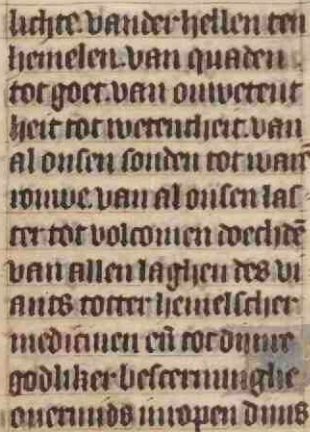 lichte. vander hellen ten
hemelen. van quaden
tot goet. van onwetent
heit tot wetentheit. van
al onsen sonden tot warē
rouwe. van al onsen las
ter tot volcomen doechdē
van allen laghen des vi
ants totter hemelscher
medicinen eñ tot dijnre
godliker beschermnighe
ouermids in open dijns